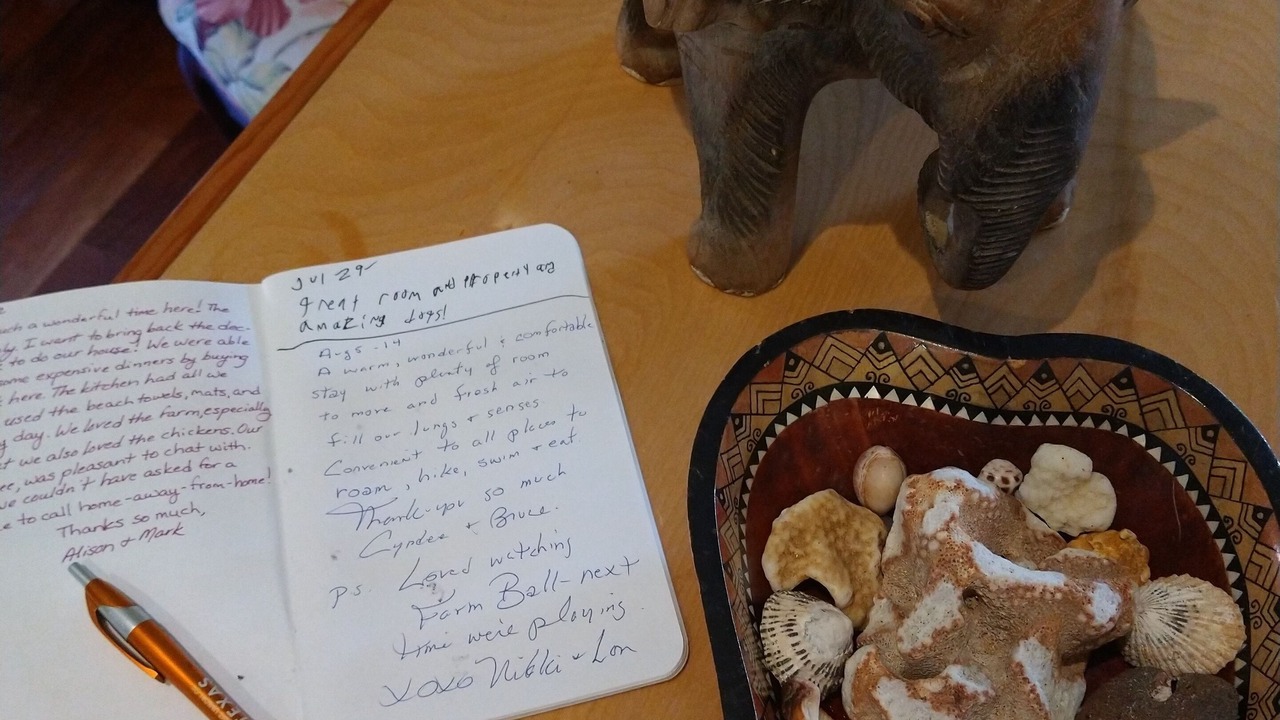 uch a wonderful time here! The
I want to bring back the dec-
to do our house! We were able
ome expensive dinners by buying
here. The kitchen had all we
used the beach towels, mats, and
day. We loved the farm, especially
t we also loved the chickens. Our
ee, was pleasant to chat with.
we couldn't have asked for a
e to call home-away-from-home!
Thanks so much,
Alison & Mark
Jul 29
great room and property
amazing dogs!
Aug 5-14
A warm, wonderful & comfortable
stay with plenty of room
to move and fresh air to
fill our lungs & senses.
Convenient to all places to
roam, hike, swim & eat.
Thank-you so much
Cyndee & Bruce.
p.s. Loved watching
Farm Ball-next
time we're playing.
XOXO Nikki & Lon
TEXAS